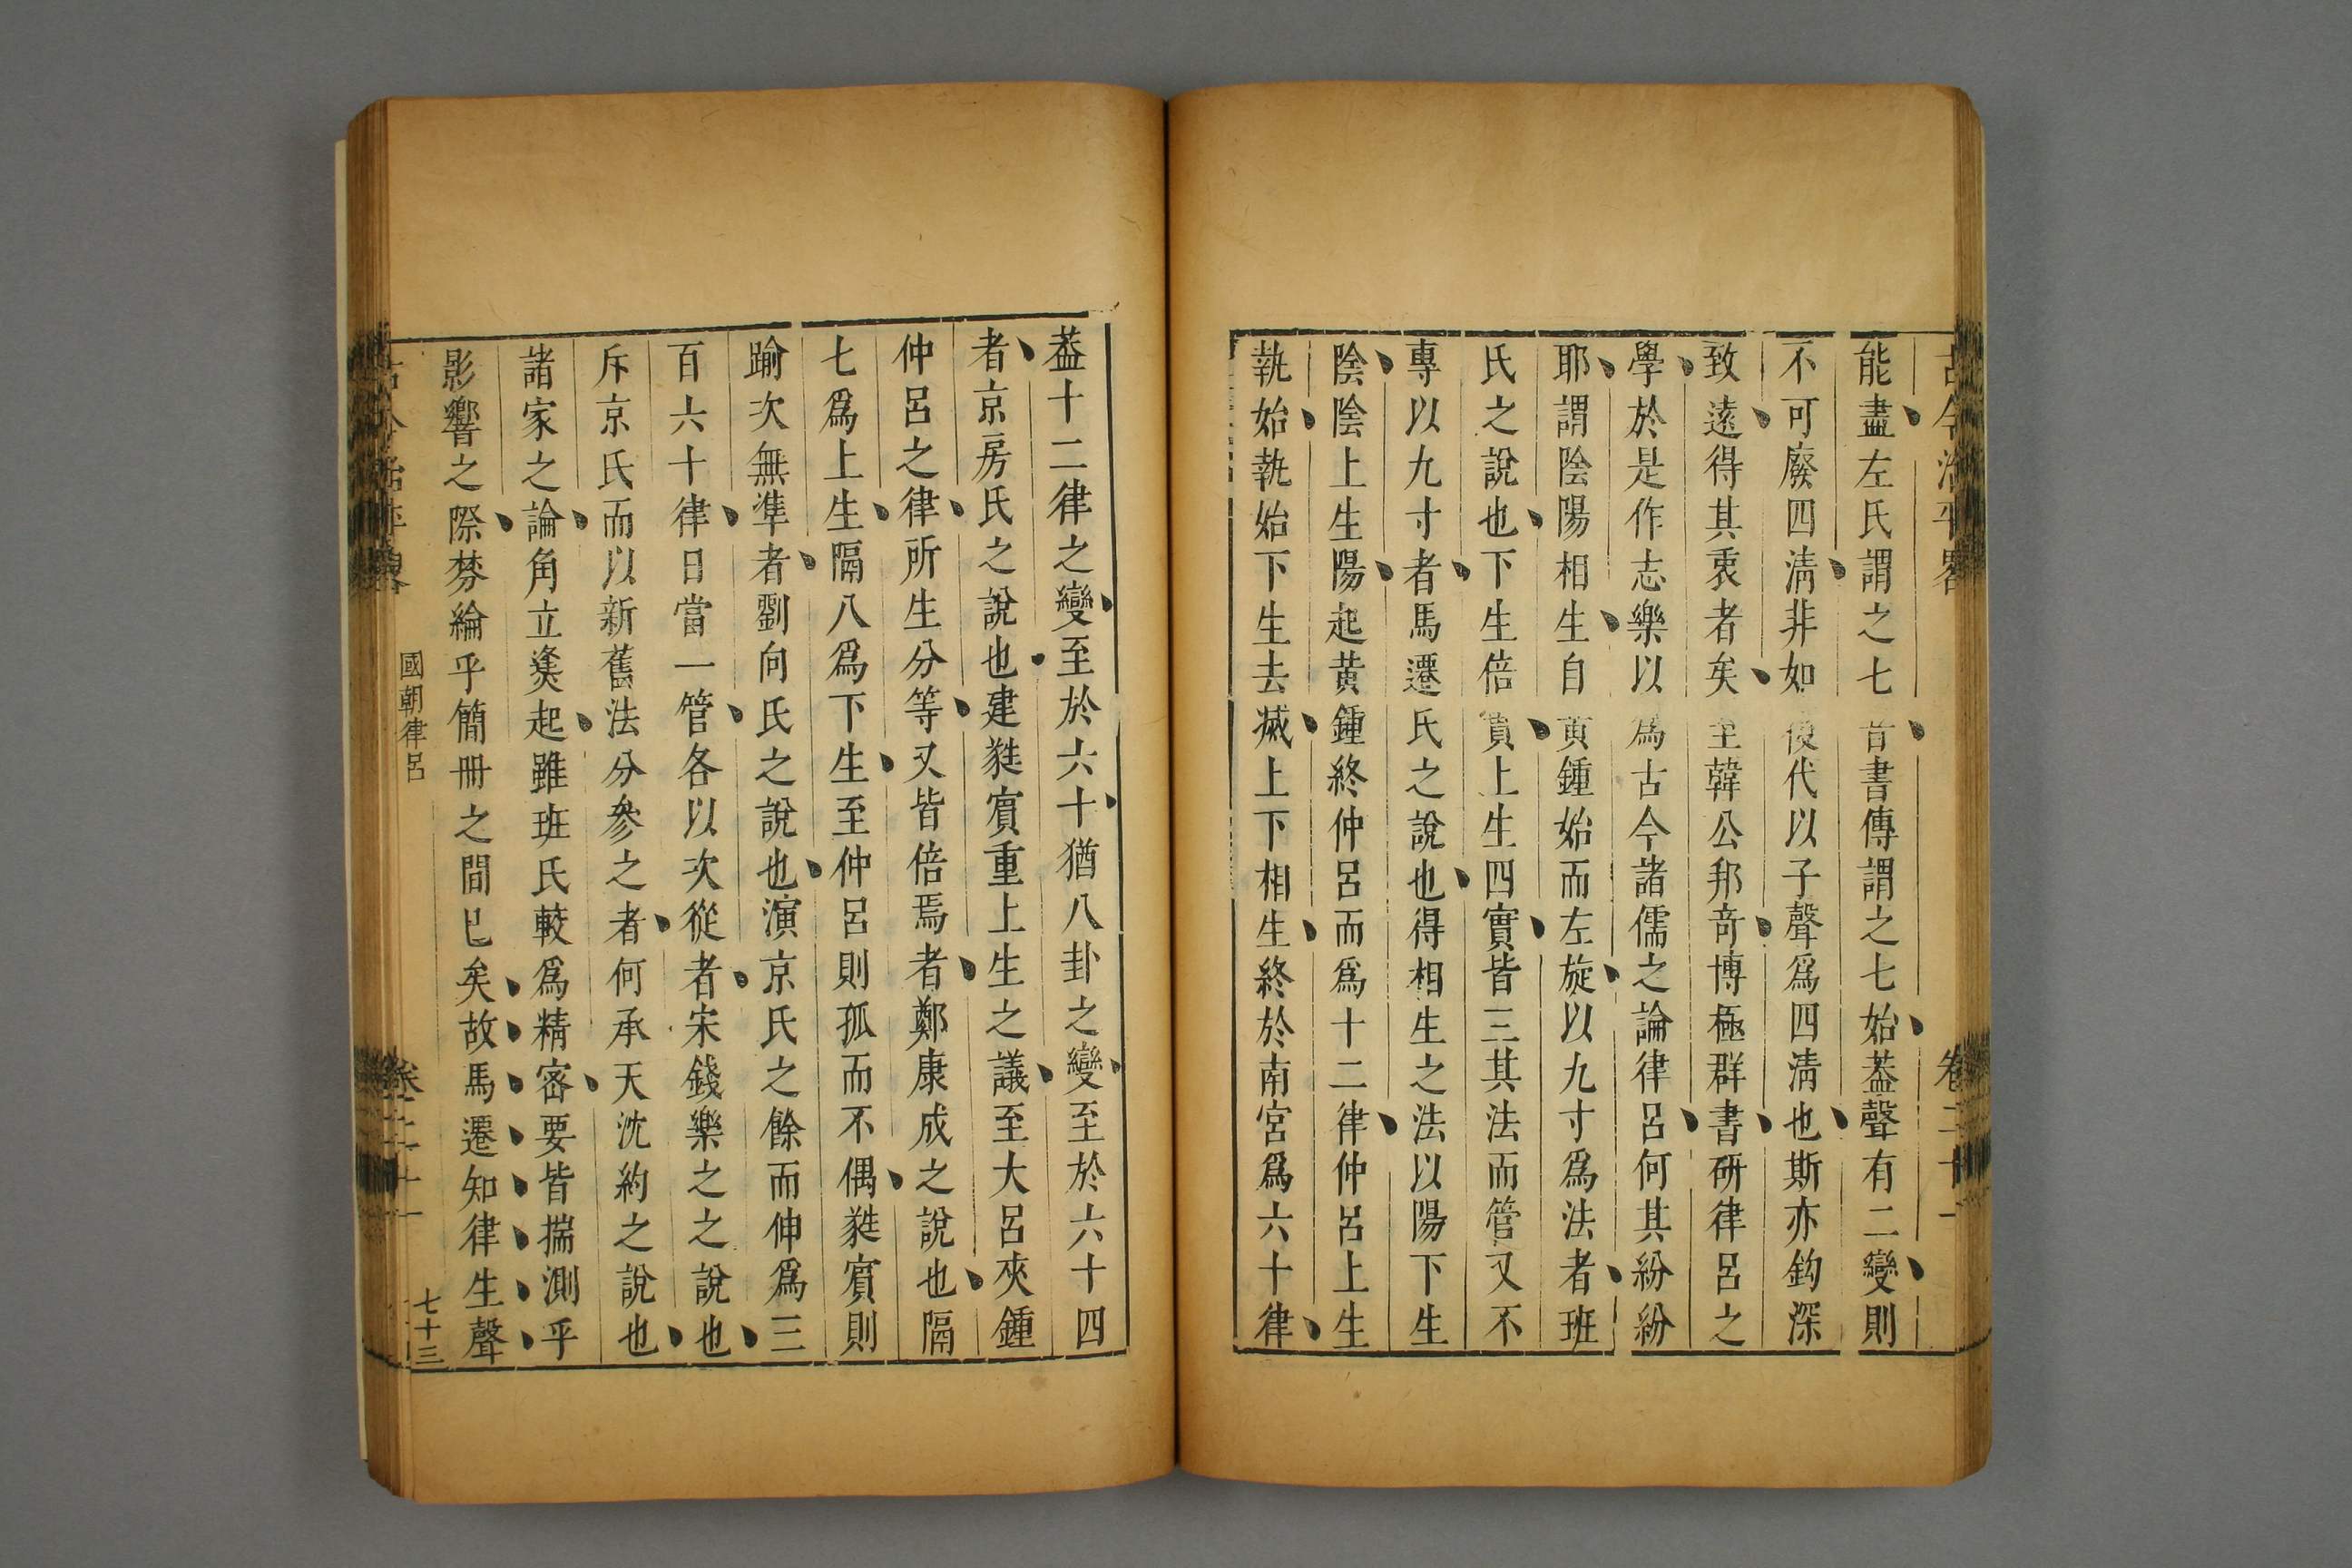 古今治平畧
卷二十一
能盡左氏謂之七音書傳謂之七始葢聲有二變則
不可廢四淸非如後代以子聲爲四淸也斯亦鈎深
致遠得其衷者矣至韓公邦奇博極群書研律呂之
學於是作志樂以爲古今諸儒之論律呂何其紛紛
耶謂陰陽相生自黃鍾始而左旋以九寸爲法者班
氏之說也下生倍實上生四實皆三其法而管又不
專以九寸者馬遷氏之說也得相生之法以陽下生
陰陰上生陽起黃鍾終仲呂而爲十二律仲呂上生
執始執始下生去滅上下相生終於南宮爲六十律
葢十二律之變至於六十猶八卦之變至於六十四
者京房氏之說也建蕤賓重上生之議至大呂夾鍾
仲呂之律所生分等又皆倍焉者鄭康成之說也隔
七爲上生隔八爲下生至仲呂則孤而不偶蕤賓則
踰次無準者劉向氏之說也演京氏之餘而伸爲三
百六十律日當一管各以次從者宋錢樂之之說也
斥京氏而以新舊法分參之者何承天沈約之說也
諸家之論角立逢起雖班氏較爲精密要皆揣測乎
影響之際棼綸乎簡冊之間已矣故馬遷知律生聲
古今治平畧
國朝律呂
卷二十一
七十三